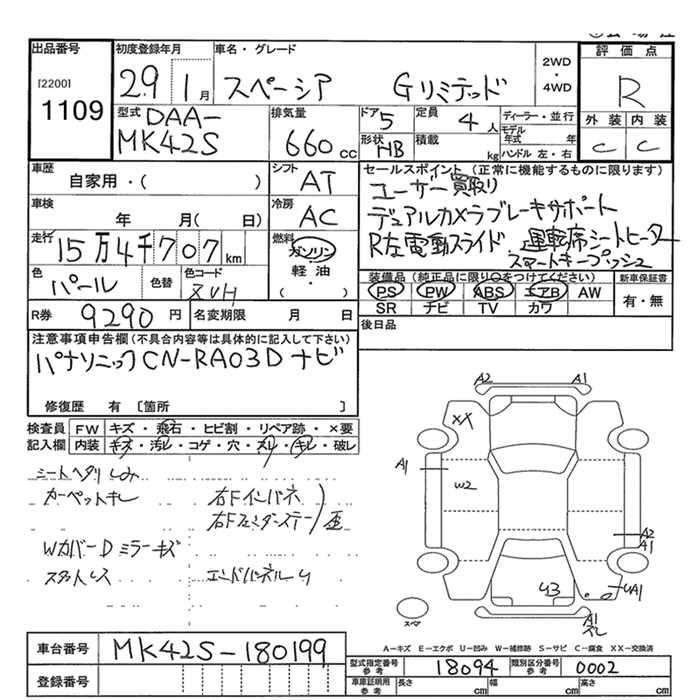 出品番号
[2200]
1109
初度登録年月
29 1月
車名・グレード
スペーシア Gリミテッド
2WD
・
4WD
評価点
R
外装 内装
C C
型式
DAA-
MK42S
排気量
660 cc
ドア 5
形状 HB
定員 4人
積載 kg
ディーラー・並行
モデル年式 年
ハンドル 左・右
車歴
自家用・( )
シフト
AT
車検
年 月( 日)
冷房
AC
走行
15万4千707km
燃料
ガソリン
軽油
・( )
色
パール
色替
色コード
ZVH
R券 9290円
名変期限 月 日
セールスポイント(正常に機能するものに限ります)
ユーザー買取り
デュアルカメラブレーキサポート
R左電動スライド 運転席シートヒーター
スマートキープッシュ
装備品(純正品に限り○をつけてください)
新車保証書
PS PW ABS エアB AW
有・無
SR ナビ TV カワ
後日品
注意事項申告欄(不具合内容等は具体的に記入して下さい)
パナソニックCN-RA03Dナビ
修復歴 有 [箇所 ]
検査員 FW キズ・飛石・ヒビ割・リペア跡・×要
記入欄 内装 キズ・汚レ・コゲ・穴・スレ・キレ・破レ
シートヘタリしみ
カーペットキレ
右Fインパネ
右Fフェンダーステー
歪
Wカバー Dミラーキズ
スタットレス
エンドパネルU
A2 A1
XX
A1
W2
A2
A1
U3
UA1
A1
スペア
A－キズ E－エクボ U－凹み W－補修跡 S－サビ C－腐食 XX－交換済
車台番号 MK42S-180199
登録番号
型式指定番号
参考
18094
類別区分番号
参考
0002
車庫証明用
参考
長さ cm 幅 cm 高さ cm